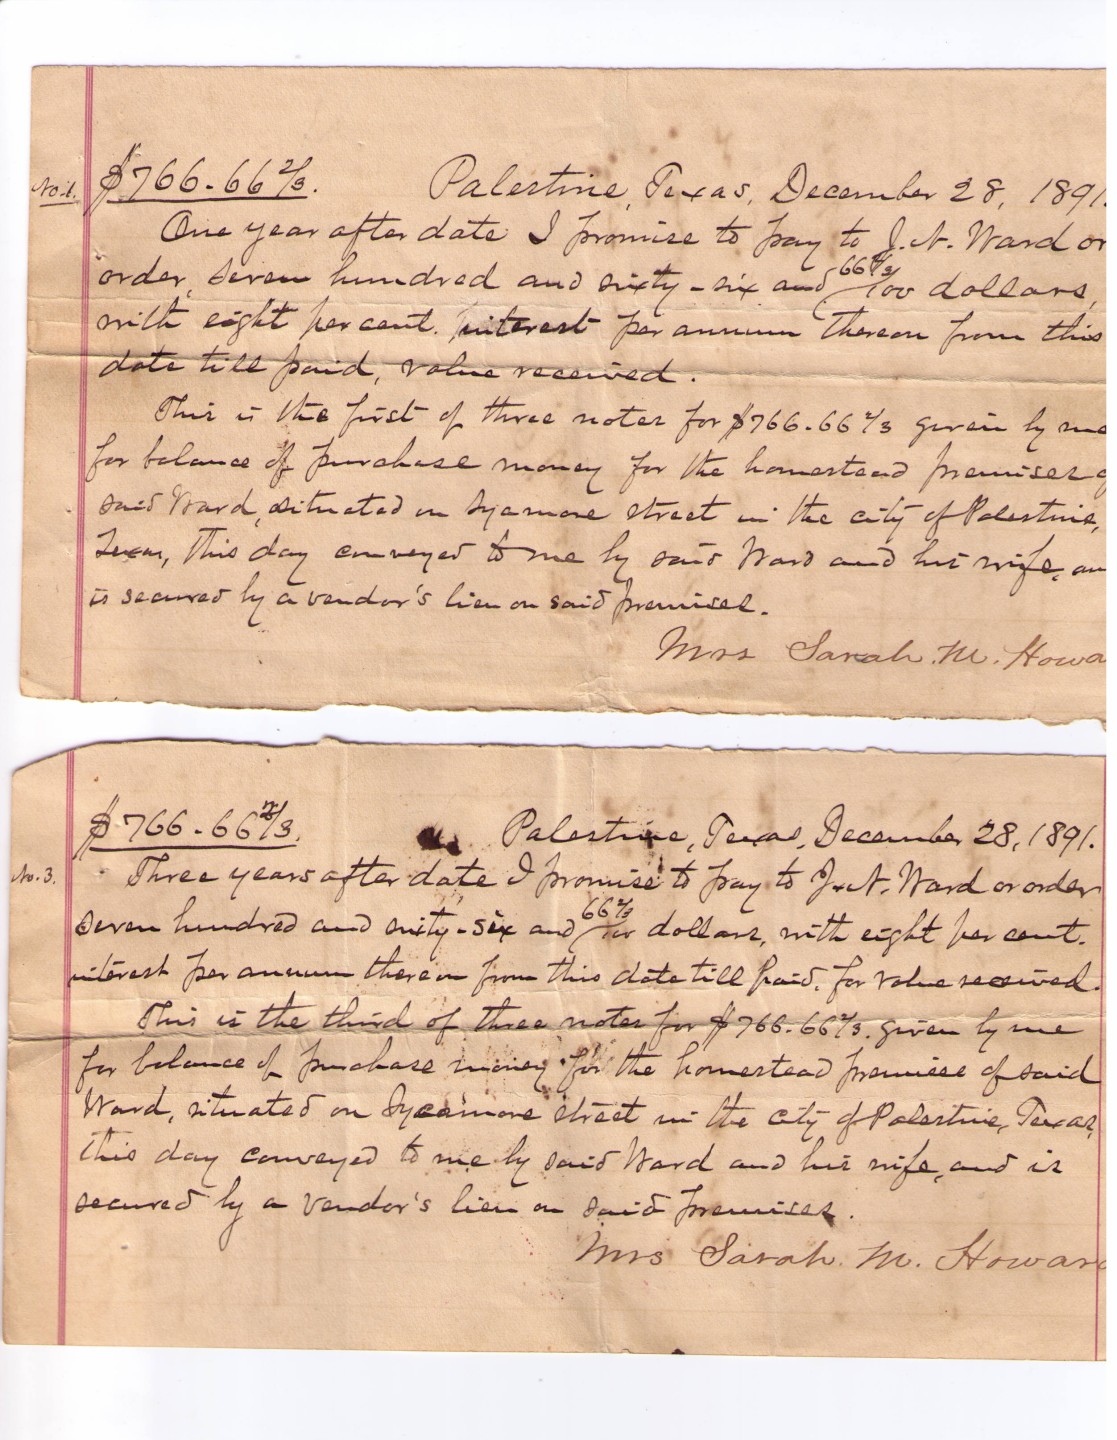 No. 1. $766.66 2/3. Palestine, Texas, December 28, 1891.
One year after date I promise to pay to J. N. Ward or
order, seven hundred and sixty-six and 66 2/3/100 dollars,
with eight per cent. interest per annum thereon from this
date till paid, value received.
This is the first of three notes for $766.66 2/3 given by me
for balance of purchase money for the homestead premises o
said Ward, situated on Sycamore street in the city of Palestine,
Texas, this day conveyed to me by said Ward and his wife, an
is secured by a vendor's lien on said premises.
Mrs Sarah. M. Howa
$766.66 2/3. Palestine, Texas, December 28, 1891.
No. 3. Three years after date I promise to pay to J. N. Ward or order
seven hundred and sixty-six and 66 2/3/100 dollars, with eight per cent.
interest per annum thereon from this date till paid, for value received.
This is the third of three notes for $766.66 2/3. given by me
for balance of purchase money for the homestead premises of said
Ward, situated on Sycamore street in the city of Palestine, Texas,
this day conveyed to me by said Ward and his wife, and is
secured by a vendor's lien on said premises.
Mrs Sarah. M. Howard